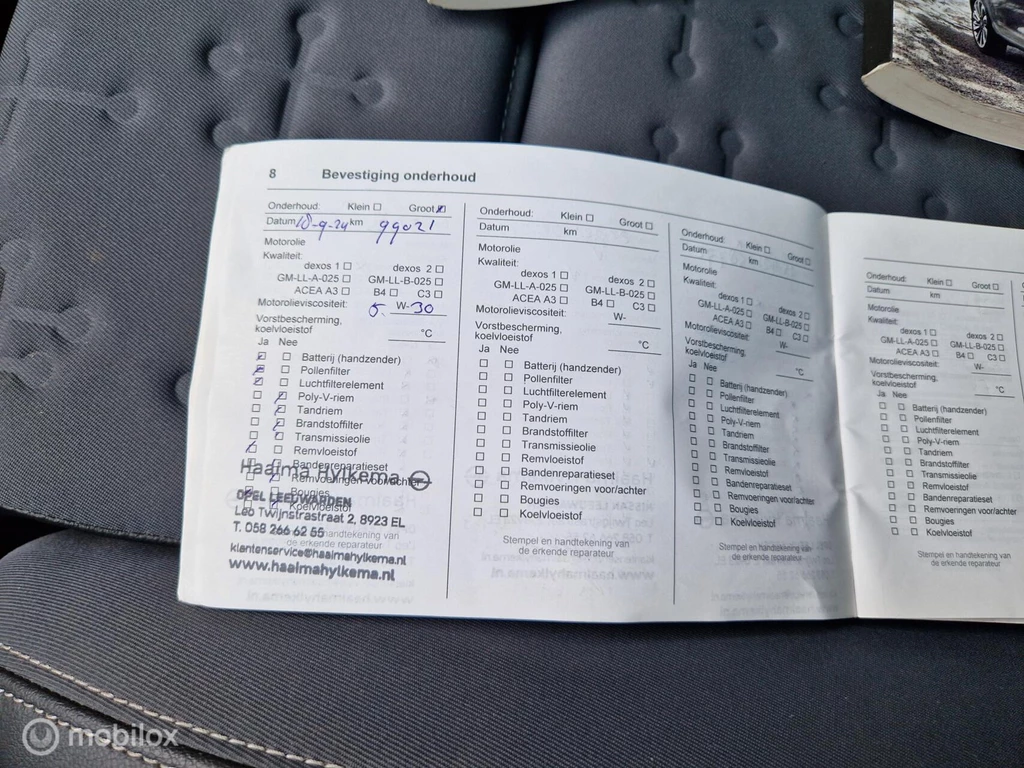 8 Bevestiging onderhoud
Onderhoud: Klein Groot
Datum 18-9-24 km 99021
Motorolie
Kwaliteit:
dexos 1 dexos 2
GM-LL-A-025 GM-LL-B-025
ACEA A3 B4 C3
Motorolieviscositeit: 5 W- 30
Vorstbescherming,
koelvloeistof °C
Ja Nee
Batterij (handzender)
Pollenfilter
Luchtfilterelement
Poly-V-riem
Tandriem
Brandstoffilter
Transmissieolie
Remvloeistof
Bandenreparatieset
Remvoeringen voor/achter
Bougies
Koelvloeistof
handtekening van
de erkende reparateur
Haaima Hylkema
OPEL LEEUWARDEN
Leo Twijnstrastraat 2, 8923 EL
T. 058 266 62 55
klantenservice@haaimahylkema.nl
www.haaimahylkema.nl
Onderhoud: Klein Groot
Datum km
Motorolie
Kwaliteit:
dexos 1 dexos 2
GM-LL-A-025 GM-LL-B-025
ACEA A3 B4 C3
Motorolieviscositeit: W-
Vorstbescherming,
koelvloeistof °C
Ja Nee
Batterij (handzender)
Pollenfilter
Luchtfilterelement
Poly-V-riem
Tandriem
Brandstoffilter
Transmissieolie
Remvloeistof
Bandenreparatieset
Remvoeringen voor/achter
Bougies
Koelvloeistof
Stempel en handtekening van
de erkende reparateur
Onderhoud: Klein Groot
Datum km
Motorolie
Kwaliteit:
dexos 1 dexos 2
GM-LL-A-025 GM-LL-B-025
ACEA A3 B4 C3
Motorolieviscositeit: W-
Vorstbescherming,
koelvloeistof °C
Ja Nee
Batterij (handzender)
Pollenfilter
Luchtfilterelement
Poly-V-riem
Tandriem
Brandstoffilter
Transmissieolie
Remvloeistof
Bandenreparatieset
Remvoeringen voor/achter
Bougies
Koelvloeistof
Stempel en handtekening van
de erkende reparateur
Onderhoud: Klein Groot
Datum km
Motorolie
Kwaliteit:
dexos 1 dexos 2
GM-LL-A-025 GM-LL-B-025
ACEA A3 B4 C3
Motorolieviscositeit: W-
Vorstbescherming,
koelvloeistof °C
Ja Nee
Batterij (handzender)
Pollenfilter
Luchtfilterelement
Poly-V-riem
Tandriem
Brandstoffilter
Transmissieolie
Remvloeistof
Bandenreparatieset
Remvoeringen voor/achter
Bougies
Koelvloeistof
Stempel en handtekening van
de erkende reparateur
mobilox